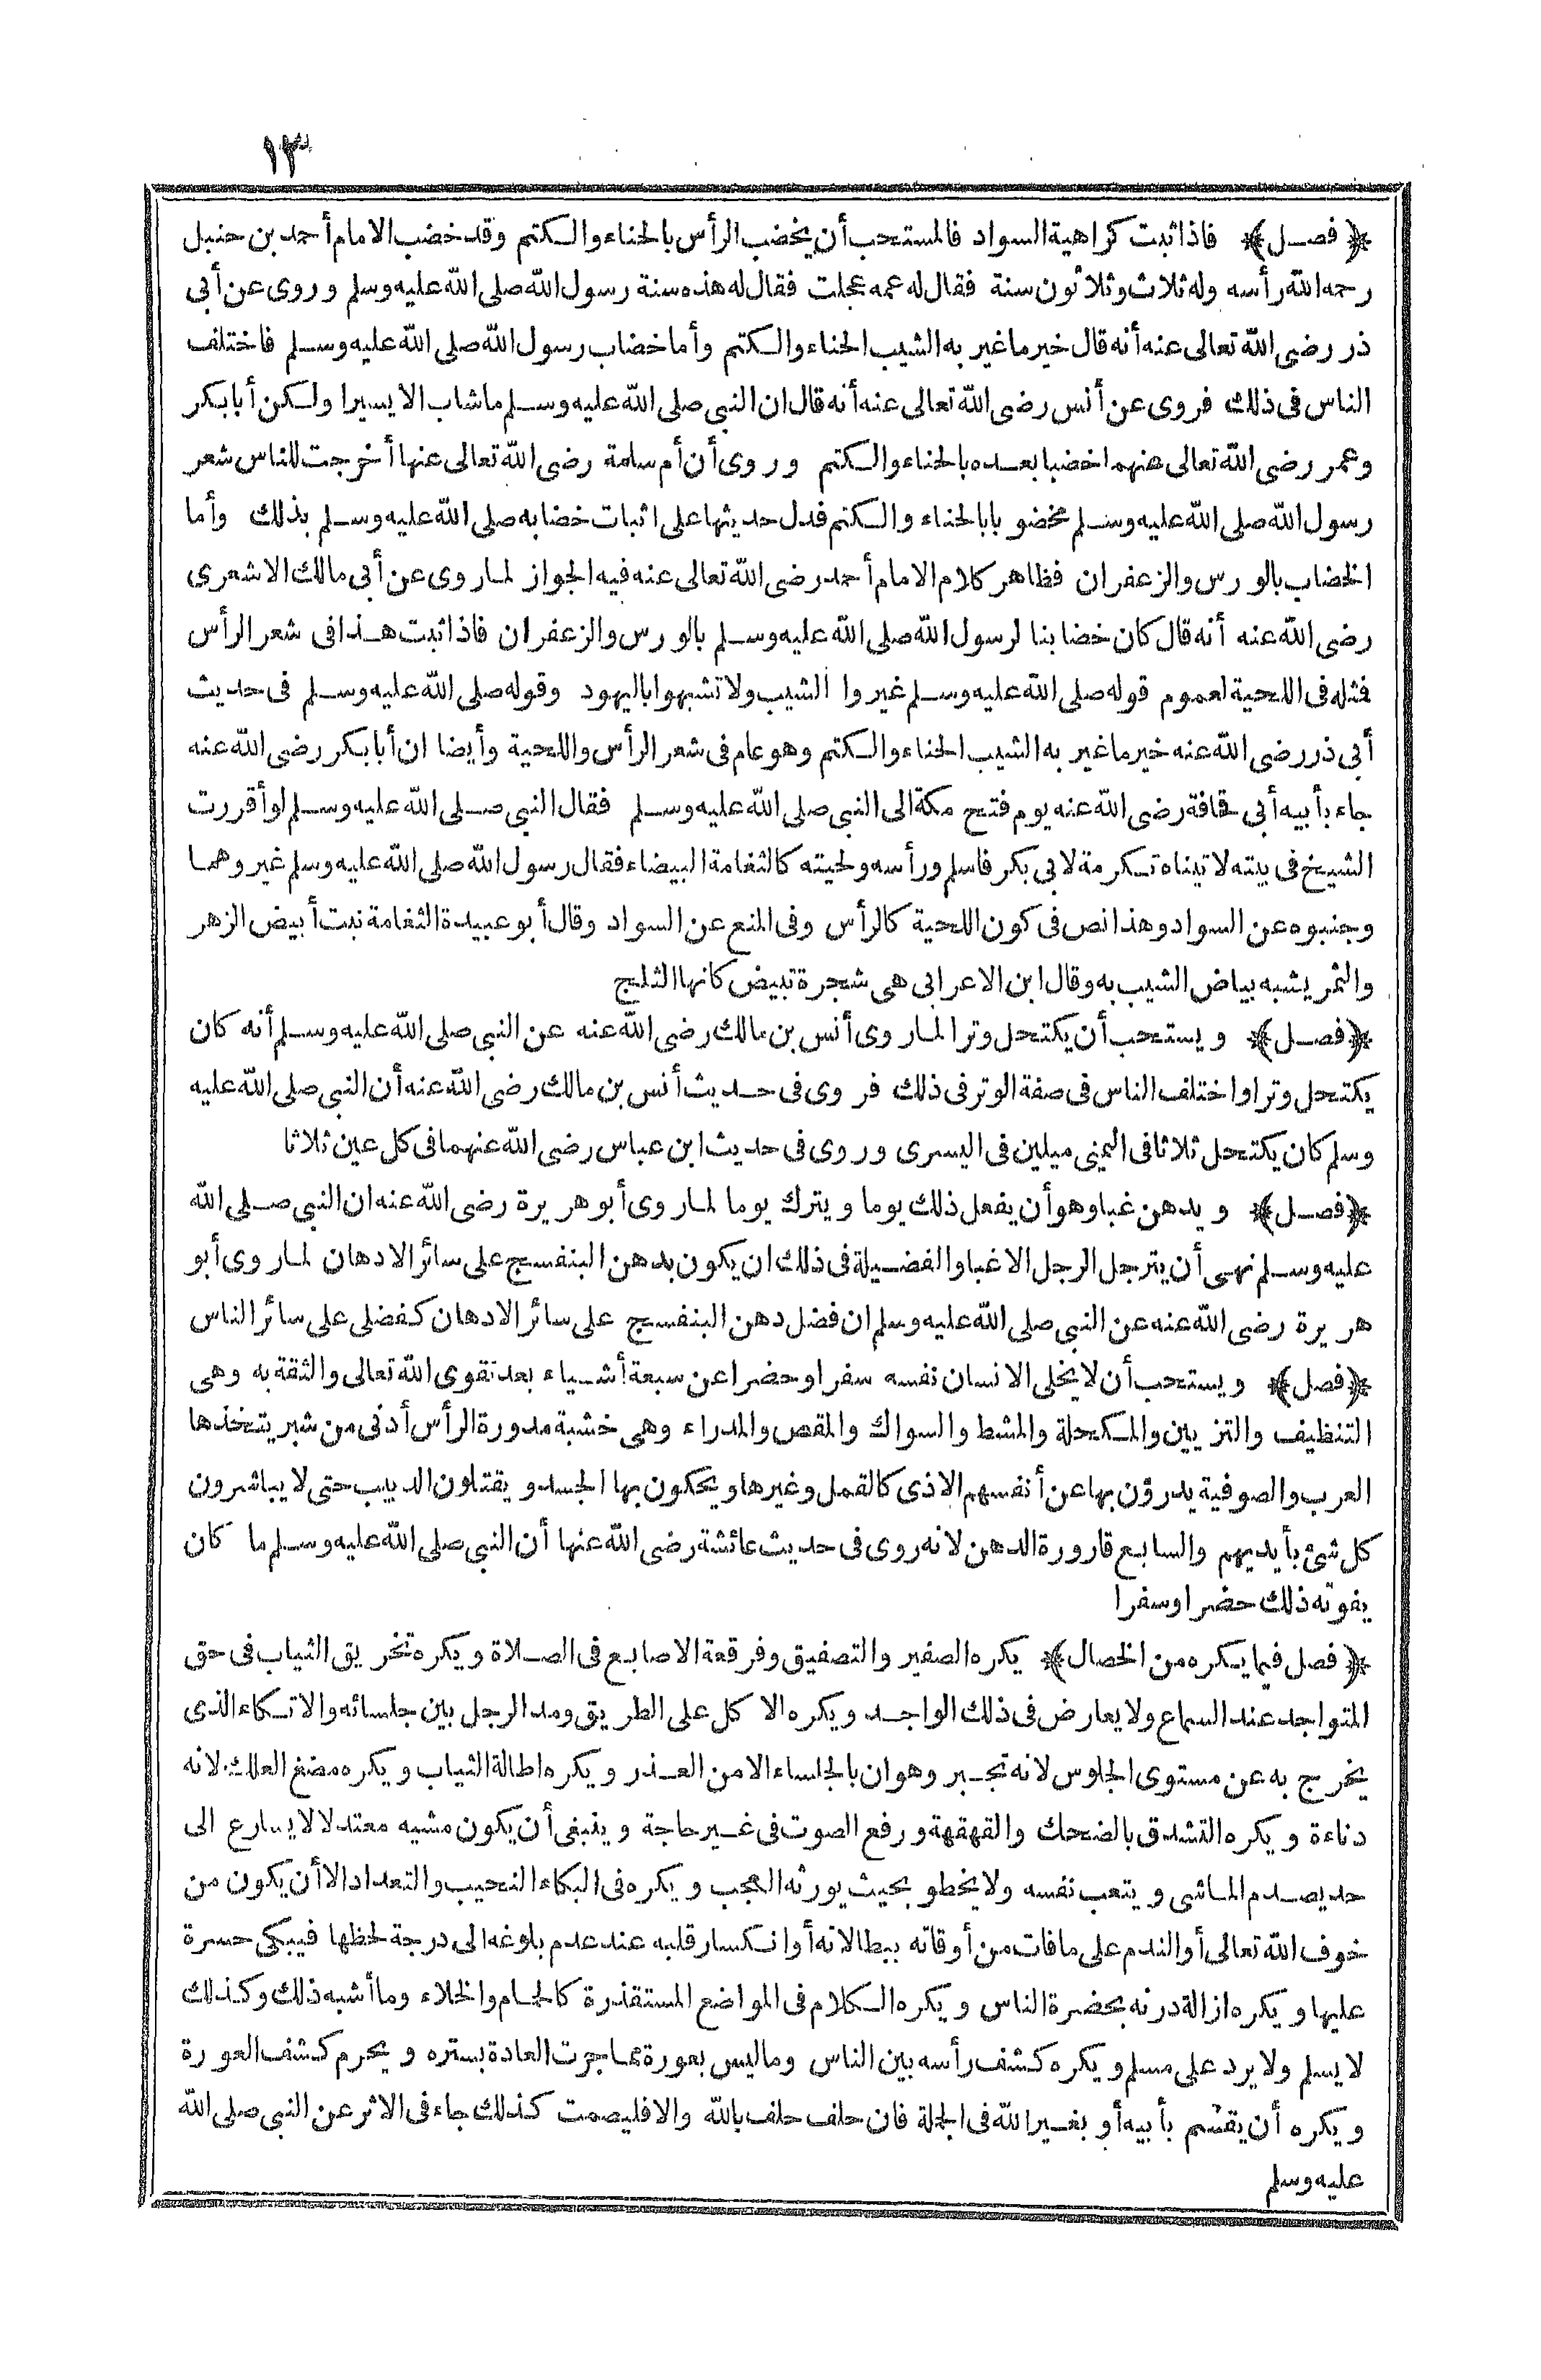 ١٣
﴿فصل﴾ فاذا ثبت كراهية السواد فالمستحب أن يخضب الرأس بالحناء والكتم وقد خضب الامام أحمد بن حنبل
رحمه الله رأسه وله ثلاث وثلاثون سنة فقال له عمه عجلت فقال له هذه سنة رسول الله صلى الله عليه وسلم وروى عن أبى
ذر رضى الله تعالى عنه أنه قال خير ما غير به الشيب الحناء والكتم وأما خضاب رسول الله صلى الله عليه وسلم فاختلف
الناس فى ذلك فروى عن أنس رضى الله تعالى عنه أنه قال ان النبى صلى الله عليه وسلم ما شاب الا يسيرا ولكن أبا بكر
وعمر رضى الله تعالى عنهما خضبا بعده بالحناء والكتم وروى أن أم سلمة رضى الله تعالى عنها أخرجت للناس شعر
رسول الله صلى الله عليه وسلم مخضوبا بالحناء والكتم فدل حديثها على اثبات خضابه صلى الله عليه وسلم بذلك وأما
الخضاب بالورس والزعفران فظاهر كلام الامام أحمد رضى الله تعالى عنه فيه الجواز لما روى عن أبى مالك الاشعرى
رضى الله عنه أنه قال كان خضابنا لرسول الله صلى الله عليه وسلم بالورس والزعفران فاذا ثبت هذا فى شعر الرأس
فمثله فى اللحية لعموم قوله صلى الله عليه وسلم غيروا الشيب ولا تشبهوا باليهود وقوله صلى الله عليه وسلم فى حديث
أبى ذر رضى الله عنه خير ما غير به الشيب الحناء والكتم وهو عام فى شعر الرأس واللحية وأيضا ان أبا بكر رضى الله عنه
جاء بأبيه أبى قحافة رضى الله عنه يوم فتح مكة الى النبى صلى الله عليه وسلم فقال النبى صلى الله عليه وسلم لو أقررت
الشيخ فى بيته لاتيناه تكرمة لابى بكر فاسلم ورأسه ولحيته كالثغامة البيضاء فقال رسول الله صلى الله عليه وسلم غيروهما
وجنبوه عن السواد وهذا نص فى كون اللحية كالرأس وفى المنع عن السواد وقال أبو عبيدة الثغامة نبت أبيض الزهر
والثمر يشبه بياض الشيب به وقال ابن الاعرابى هى شجرة تبيض كانها الثلج
﴿فصل﴾ ويستحب أن يكتحل وترا لما روى أنس بن مالك رضى الله عنه عن النبى صلى الله عليه وسلم أنه كان
يكتحل وترا واختلف الناس فى صفة الوتر فى ذلك فروى فى حديث أنس بن مالك رضى الله عنه أن النبى صلى الله عليه
وسلم كان يكتحل ثلاثا فى اليمنى ميلين فى اليسرى وروى فى حديث ابن عباس رضى الله عنهما فى كل عين ثلاثا
﴿فصل﴾ ويدهن غبا وهو أن يفعل ذلك يوما ويترك يوما لما روى أبو هريرة رضى الله عنه ان النبى صلى الله
عليه وسلم نهى أن يترجل الرجل الا غبا والفضيلة فى ذلك ان يكون بدهن البنفسج على سائر الادهان لما روى أبو
هريرة رضى الله عنه عن النبى صلى الله عليه وسلم ان فضل دهن البنفسج على سائر الادهان كفضلى على سائر الناس
﴿فصل﴾ ويستحب أن لا يخلى الانسان نفسه سفرا وحضرا عن سبعة أشياء بعد تقوى الله تعالى والثقة به وهى
التنظيف والتزيين والمكحلة والمشط والسواك والمقص والمدراء وهى خشبة مدورة الرأس أدنى من شبر يتخذها
العرب والصوفية يدرؤن بها عن أنفسهم الاذى كالقمل وغيرها ويحكون بها الجسد ويقتلون الدبيب حتى لا يباشرون
كل شئ بأيديهم والسابع قارورة الدهن لانه روى فى حديث عائشة رضى الله عنها أن النبى صلى الله عليه وسلم ما كان
يفوته ذلك حضرا وسفرا
﴿فصل فيما يكره من الخصال﴾ يكره الصفير والتصفيق وفرقعة الاصابع فى الصلاة ويكره تخريق الثياب فى حق
المتواجد عند السماع ولا يعارض فى ذلك الواجد ويكره الاكل على الطريق ومد الرجل بين جلسائه والاتكاء الذى
يخرج به عن مستوى الجلوس لانه تجبر وهوان بالجلساء الا من العذر ويكره اطالة الثياب ويكره مضغ العلك لانه
دناءة ويكره التشدق بالضحك والقهقهة ورفع الصوت فى غير حاجة وينبغى أن يكون مشيه معتدلا لا يسارع الى
حد يصدم الماشى ويتعب نفسه ولا يخطو بحيث يورثه العجب ويكره فى البكاء النحيب والتعداد الا أن يكون من
خوف الله تعالى أو الندم على ما فات من أوقاته ببطالاته أو انكسار قلبه عند عدم بلوغه الى درجة لحظها فيبكى حسرة
عليها ويكره ازالة درنه بحضرة الناس ويكره الكلام فى المواضع المستقذرة كالحمام والخلاء وما أشبه ذلك وكذلك
لا يسلم ولا يرد على مسلم ويكره كشف رأسه بين الناس وما ليس بعورة مما جرت العادة بستره ويحرم كشف العورة
ويكره أن يقسم بأبيه أو بغير الله فى الجملة فان حلف حلف بالله والا فليصمت كذلك جاء فى الاثر عن النبى صلى الله
عليه وسلم